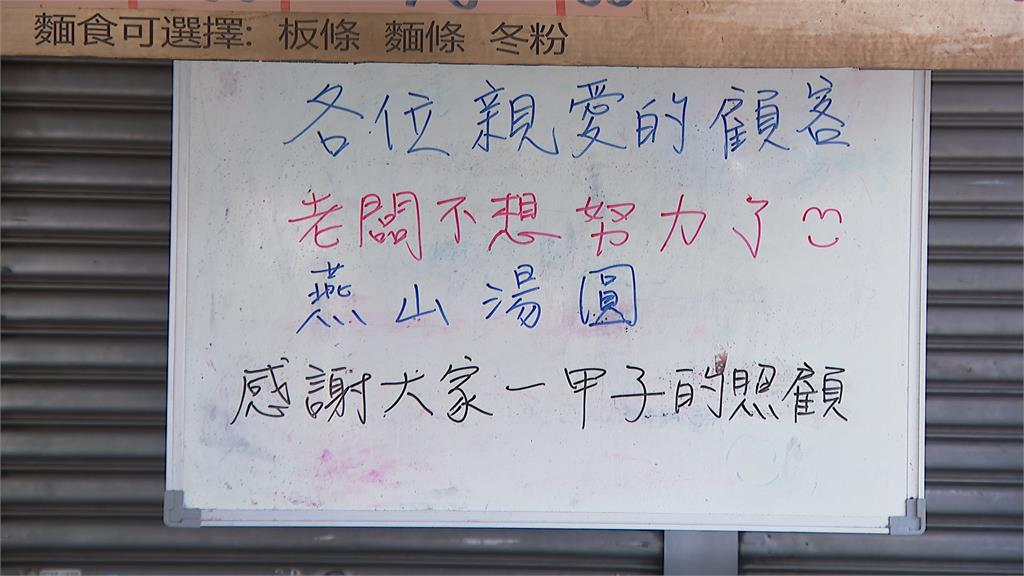 麵食可選擇: 板條 麵條 冬粉
各位親愛的顧客
老闆不想努力了
燕山湯圓
感謝大家一甲子的照顧